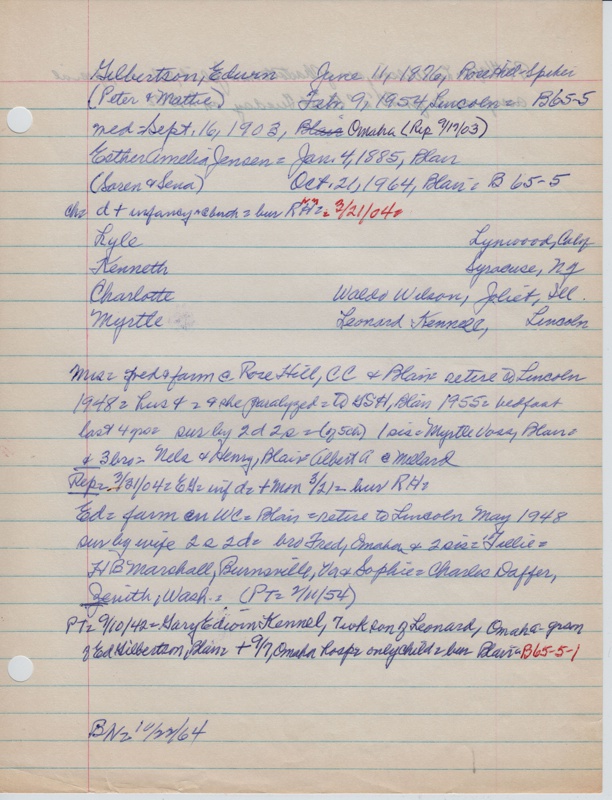 Gilbertson, Edwin June 11, 1876, Rose Hill-Spiker
(Peter & Mattie) Feb. 9, 1954, Lincoln = B65-5
med = Sept. 16, 1903, Blair Omaha (Rep 9/17/03)
Esther Amelia Jensen = Jan. 4, 1885, Blair
(Soren & Sena) Oct. 21, 1964, Blair = B 65-5
ch = d + infancy = = bur RH = 3/21/04 =
Lyle Lynwood, Calif
Kenneth Syracuse, NY
Charlotte Waldo Wilson, Joliet, Ill.
Myrtle Leonard Kennell, Lincoln
Mrs = & farm @ Rose Hill, CC & Blair = retire to Lincoln
1948 = hus + = & she paralyzed = to GSH, Blair 1955 = bedfast
last 4 yrs = sur by 2d 2s = (of sch) 1 sis = Myrtle Voss, Blair =
& 3 bro = Nels & Henry, Blair = Albert A @ Malard
Rep = 3/31/04 = Ed = inf d = + Mon 3/21 = bur RH =
Ed = farm on WC = Blair = retire to Lincoln May 1948
sur by wife 2s 2d = bro Fred, Omaha & 2 sis = Tillie =
H B Marshall, Burnsville, Va & Sophie = Charles Daffer,
Zenith, Wash. = (PT = 2/11/54)
PT = 9/10/42 = Gary Edwin Kennel, 7 wk son of Leonard, Omaha = gson
of Ed Gilbertson, Blair + 9/7, Omaha hosp = only child = bur Blair = B65-5-1
BN = 10/22/64